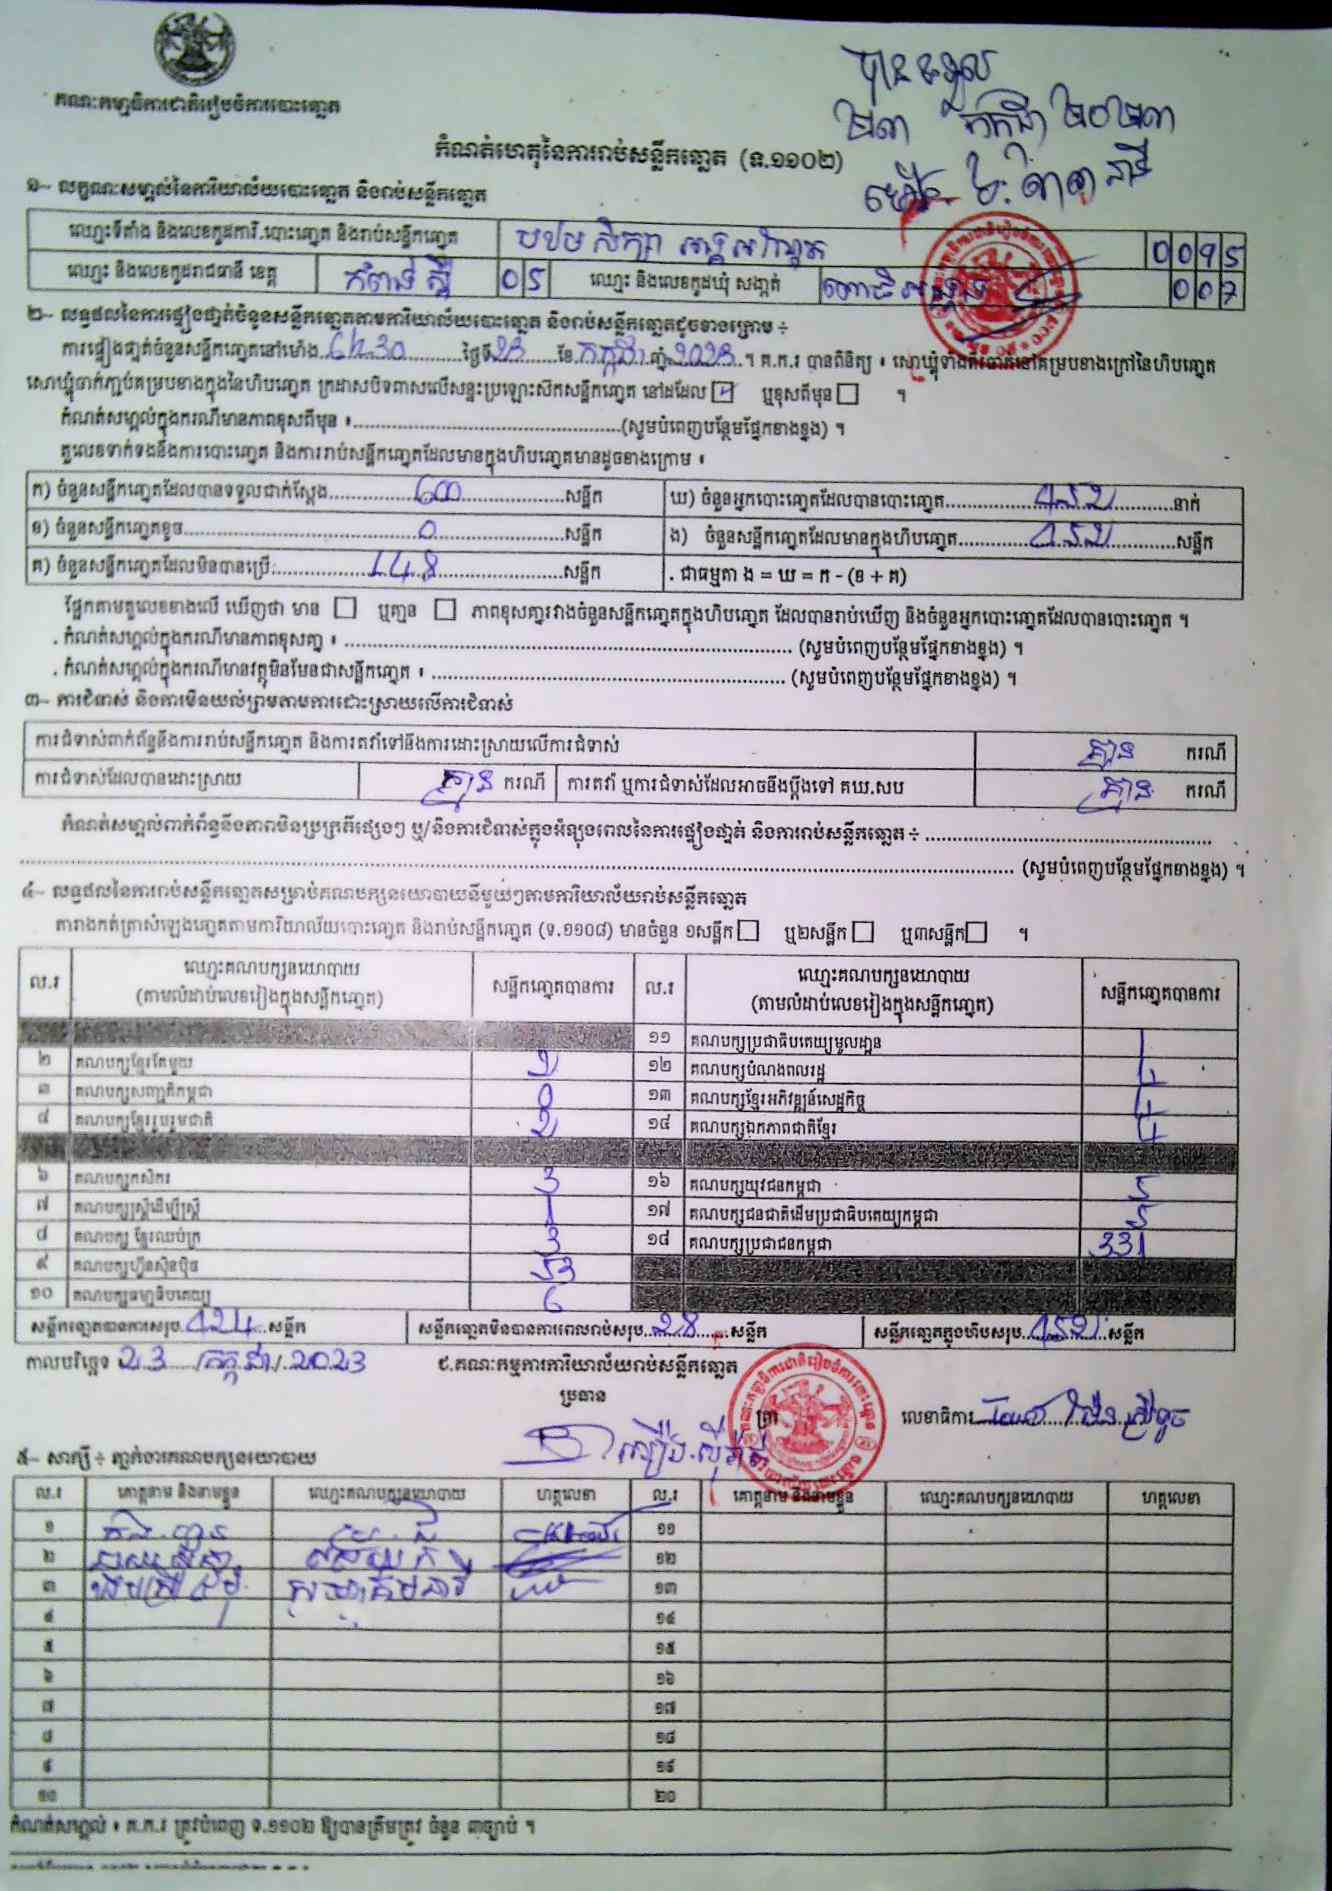 គណៈកម្មាធិការជាតិរៀបចំការបោះឆ្នោត
បានទទួល
២៣ កក្កដា ២០២៣
កំណត់ហេតុនៃការរាប់សន្លឹកឆ្នោត (ទ.១១០២)
១- លក្ខណៈសម្គាល់នៃការិយាល័យបោះឆ្នោត និងរាប់សន្លឹកឆ្នោត
ឈ្មោះទីតាំង និងលេខកូដការិ.បោះឆ្នោត និងរាប់សន្លឹកឆ្នោត បឋម សិក្សា 0095
ឈ្មោះ និងលេខកូដរាជធានី ខេត្ត កំពង់ ស្ពឺ 05 ឈ្មោះ និងលេខកូដឃុំ សង្កាត់ 007
២- លទ្ធផលនៃការផ្ទៀងផ្ទាត់ចំនួនសន្លឹកឆ្នោតតាមការិយាល័យបោះឆ្នោត និងរាប់សន្លឹកឆ្នោតដូចខាងក្រោម ÷
ការផ្ទៀងផ្ទាត់ចំនួនសន្លឹកឆ្នោតនៅម៉ោង ថ្ងៃទី 23 ខែ កក្កដា ឆ្នាំ 2023 ។ គ.ក.រ បានពិនិត្យ ៖ សោឃ្លុំទាំងពីរចាក់នៅគម្របខាងក្រៅនៃហិបឆ្នោត
សោឃ្លុំចាក់ភ្ជាប់គម្របខាងក្នុងនៃហិបឆ្នោត ក្រដាសបិទពាសលើសន្ទះប្រឡោះស៊កសន្លឹកឆ្នោត នៅដដែល ☑ ឬខុសពីមុន ☐ ។
កំណត់សម្គាល់ក្នុងករណីមានភាពខុសពីមុន ៖ (សូមបំពេញបន្ថែមផ្នែកខាងខ្នង) ។
តួលេខទាក់ទងនឹងការបោះឆ្នោត និងការរាប់សន្លឹកឆ្នោតដែលមានក្នុងហិបឆ្នោតមានដូចខាងក្រោម ៖
ក) ចំនួនសន្លឹកឆ្នោតដែលបានទទួលជាក់ស្តែង 600 សន្លឹក ឃ) ចំនួនអ្នកបោះឆ្នោតដែលបានបោះឆ្នោត 452 នាក់
ខ) ចំនួនសន្លឹកឆ្នោតខូច 0 សន្លឹក ង) ចំនួនសន្លឹកឆ្នោតដែលមានក្នុងហិបឆ្នោត 452 សន្លឹក
គ) ចំនួនសន្លឹកឆ្នោតដែលមិនបានប្រើ 148 សន្លឹក . ជាធម្មតា ង = ឃ = ក - (ខ + គ)
ផ្អែកតាមតួលេខខាងលើ ឃើញថា មាន ☐ ឬគ្មាន ☐ ភាពខុសគ្នារវាងចំនួនសន្លឹកឆ្នោតក្នុងហិបឆ្នោត ដែលបានរាប់ឃើញ និងចំនួនអ្នកបោះឆ្នោតដែលបានបោះឆ្នោត ។
. កំណត់សម្គាល់ក្នុងករណីមានភាពខុសគ្នា ៖ (សូមបំពេញបន្ថែមផ្នែកខាងខ្នង) ។
. កំណត់សម្គាល់ក្នុងករណីមានវត្ថុមិនមែនជាសន្លឹកឆ្នោត ៖ (សូមបំពេញបន្ថែមផ្នែកខាងខ្នង) ។
៣- ការជំទាស់ និងការមិនយល់ព្រមតាមការដោះស្រាយលើការជំទាស់
ការជំទាស់ពាក់ព័ន្ធនឹងការរាប់សន្លឹកឆ្នោត និងការតវ៉ាទៅនឹងការដោះស្រាយលើការជំទាស់ គ្មាន ករណី
ការជំទាស់ដែលបានដោះស្រាយ គ្មាន ករណី ការតវ៉ា ឬការជំទាស់ដែលអាចនឹងប្តឹងទៅ គឃ.សប គ្មាន ករណី
កំណត់សម្គាល់ពាក់ព័ន្ធនឹងភាពមិនប្រក្រតីផ្សេងៗ ឬ/និងការជំទាស់ក្នុងអំឡុងពេលនៃការផ្ទៀងផ្ទាត់ និងការរាប់សន្លឹកឆ្នោត ÷
(សូមបំពេញបន្ថែមផ្នែកខាងខ្នង) ។
៤- លទ្ធផលនៃការរាប់សន្លឹកឆ្នោតសម្រាប់គណបក្សនយោបាយនីមួយៗតាមការិយាល័យរាប់សន្លឹកឆ្នោត
តារាងកត់ត្រាសំឡេងឆ្នោតតាមការិយាល័យបោះឆ្នោត និងរាប់សន្លឹកឆ្នោត (ទ.១១០៨) មានចំនួន ១សន្លឹក ☐ ឬ២សន្លឹក ☐ ឬ៣សន្លឹក ☐ ។
ល.រ ឈ្មោះគណបក្សនយោបាយ (តាមលំដាប់លេខរៀងក្នុងសន្លឹកឆ្នោត) សន្លឹកឆ្នោតបានការ ល.រ ឈ្មោះគណបក្សនយោបាយ (តាមលំដាប់លេខរៀងក្នុងសន្លឹកឆ្នោត) សន្លឹកឆ្នោតបានការ
១១ គណបក្សប្រជាធិបតេយ្យមូលដ្ឋាន 1
២ គណបក្សខ្មែរតែមួយ 2 ១២ គណបក្សបំណងពលរដ្ឋ
៣ គណបក្សសញ្ជាតិកម្ពុជា 0 ១៣ គណបក្សខ្មែរអភិវឌ្ឍន៍សេដ្ឋកិច្ច
៤ គណបក្សខ្មែររួបរួមជាតិ 2 ១៤ គណបក្សឯកភាពជាតិខ្មែរ
៦ គណបក្សកសិករ 3 ១៦ គណបក្សយុវជនកម្ពុជា 5
៧ គណបក្សស្ត្រីដើម្បីស្ត្រី 1 ១៧ គណបក្សជនជាតិដើមប្រជាធិបតេយ្យកម្ពុជា 5
៨ គណបក្ស ខ្មែរឈប់ក្រ 3 ១៨ គណបក្សប្រជាជនកម្ពុជា 331
៩ គណបក្សហ្វ៊ុនស៊ិនប៉ិច 53
១០ គណបក្សធម្មាធិបតេយ្យ 6
សន្លឹកឆ្នោតបានការសរុប 424 សន្លឹក សន្លឹកឆ្នោតមិនបានការពេលរាប់សរុប 28 សន្លឹក សន្លឹកឆ្នោតក្នុងហិបសរុប 452 សន្លឹក
កាលបរិច្ឆេទ 23 / កក្កដា / 2023 ជ.គណៈកម្មការការិយាល័យរាប់សន្លឹកឆ្នោត
ប្រធាន ត្រា លេខាធិការ
៥- សាក្សី ÷ ភ្នាក់ងារគណបក្សនយោបាយ
ល.រ គោត្តនាម និងនាមខ្លួន ឈ្មោះគណបក្សនយោបាយ ហត្ថលេខា ល.រ គោត្តនាម និងនាមខ្លួន ឈ្មោះគណបក្សនយោបាយ ហត្ថលេខា
១ ១១
២ ១២
៣ ១៣
៤ ១៤
៥ ១៥
៦ ១៦
៧ ១៧
៨ ១៨
៩ ១៩
១០ ២០
កំណត់សម្គាល់ ៖ គ.ក.រ ត្រូវបំពេញ ទ.១១០២ ឱ្យបានត្រឹមត្រូវ ចំនួន ៣ច្បាប់ ។